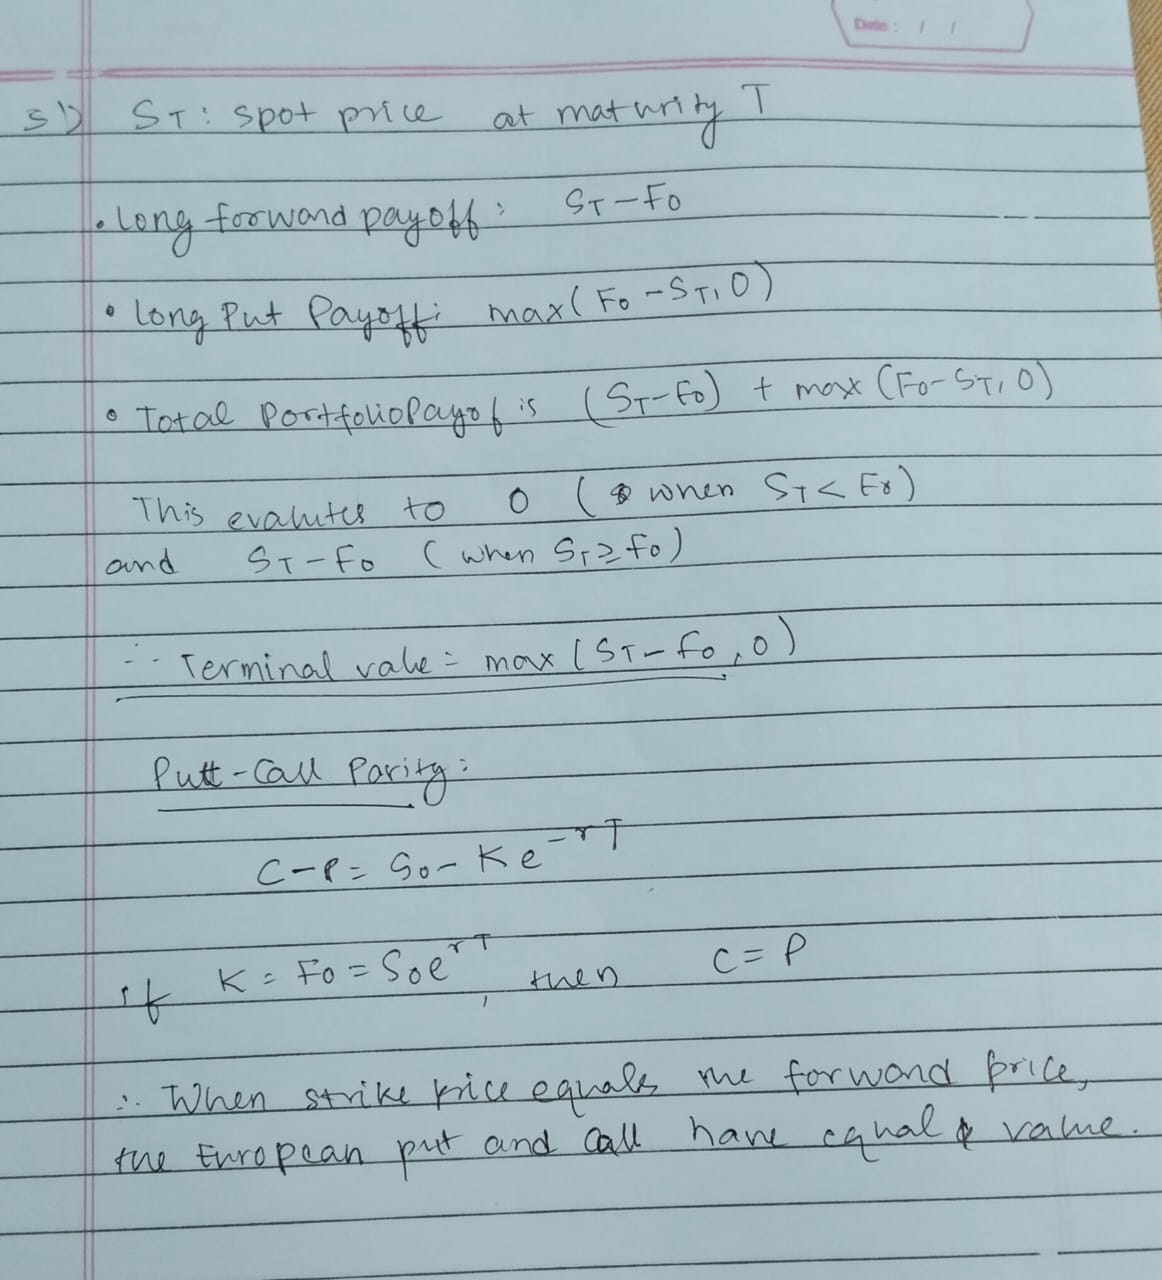 Date: / /
5) ST: spot price at maturity T
• Long forward payoff: ST-F0
• Long Put Payoff: max(F0-ST,0)
• Total Portfolio Payof is (ST-F0) + max (F0-ST,0)
This evalutes to 0 (when ST<F0)
and ST-F0 (when ST≥F0)
∴ Terminal value = max (ST-F0,0)
Putt-Call Parity:
C-P= S0- Ke^-rT
If K= F0 = S0e^rT, then C=P
∴ When strike price equals the forward price,
the European put and call have equal value.